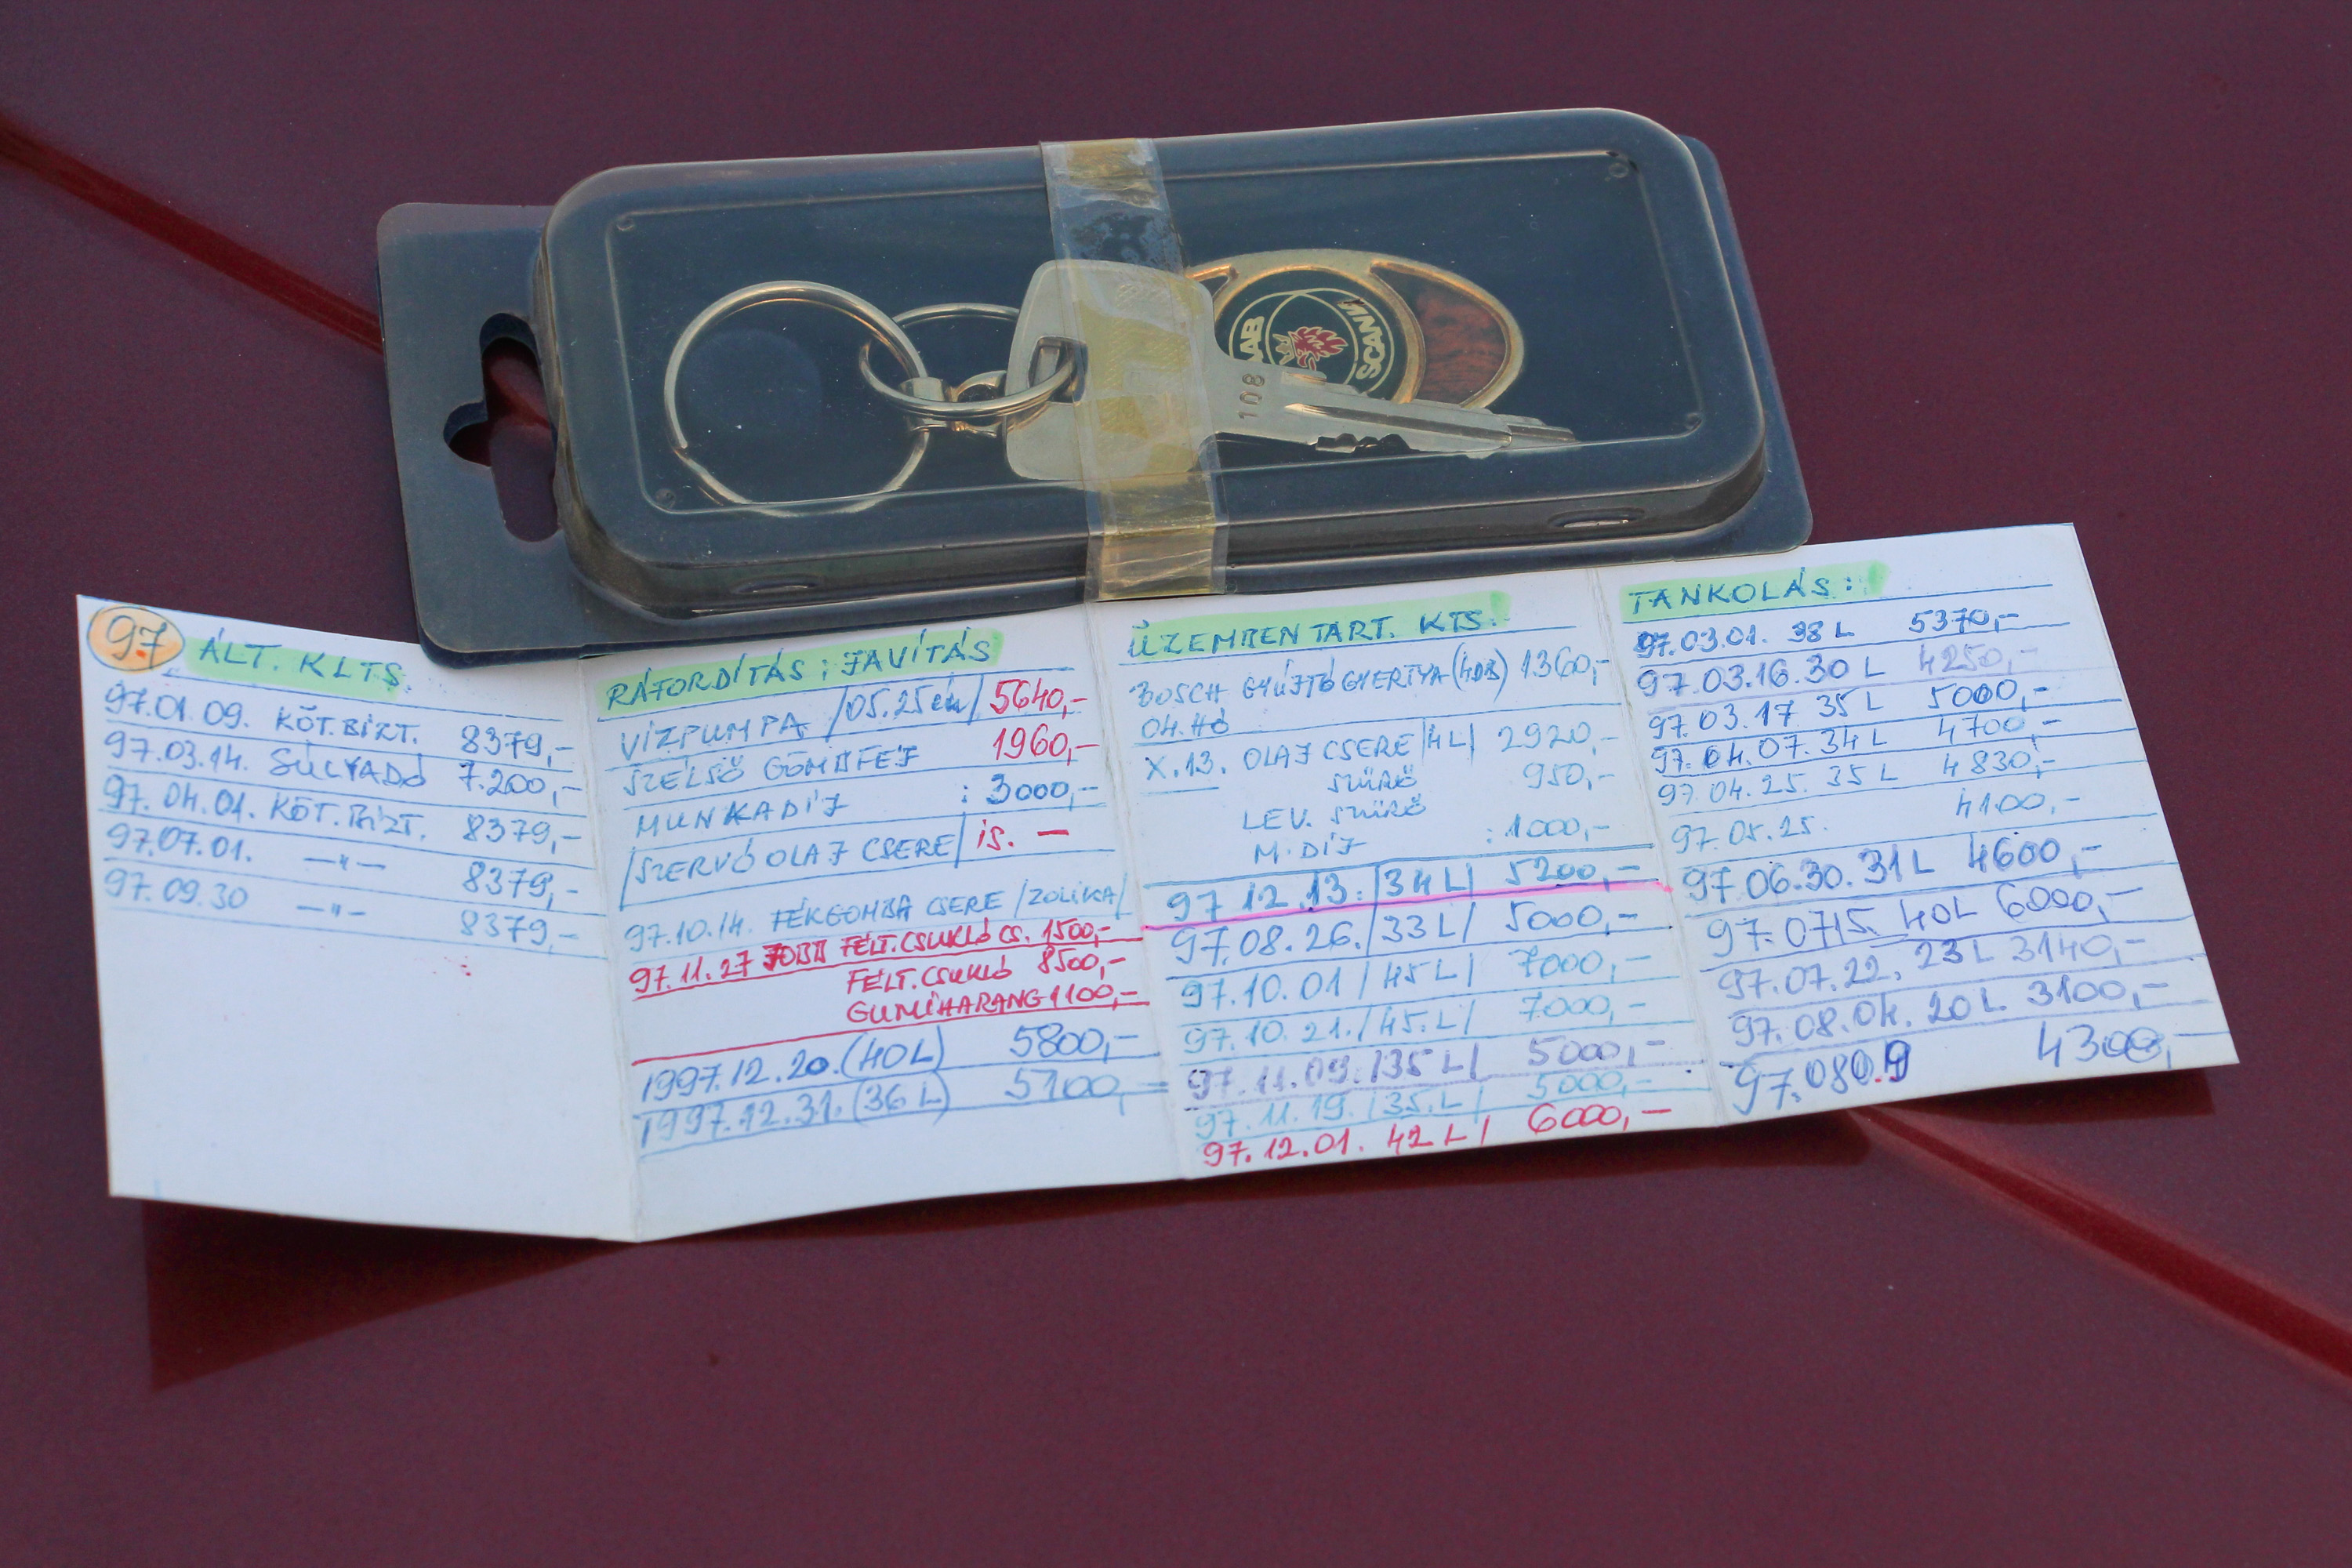 SAAB
SCANIA
108
97
ÁLT. KLTS.
97.01.09. KÖT.BIZT. 8379,-
97.03.14. SÚLYADÓ 7.200,-
97.04.01. KÖT.BIZT. 8379,-
97.07.01. —"— 8379,-
97.09.30 —"— 8379,-
RÁFORDÍTÁS; JAVÍTÁS
VÍZPUMPA /05.25én/ 5640,-
SZÉLSŐ GÖMBFEJ 1960,-
MUNKADÍJ : 3000,-
/SZERVÓ OLAJ CSERE/ is. —
97.10.14. FÉKGOMBA CSERE /ZOLIKA/
97.11.27 JOBB FÉLT.CSUKLÓ CS. 1500,-
FÉLT.CSUKLÓ 8500,-
GUMIHARANG 1100,-
1997.12.20. (40L) 5800,-
1997.12.31. (36 L) 5100,-
ÜZEMBEN TART. KTS.
BOSCH GYÚJTÓGYERTYA (4DB) 1360,-
04.HÓ
X.13. OLAJ CSERE /4L/ 2920,-
SZŰRŐ 950,-
LEV. SZŰRŐ
M.DÍJ : 1000,-
97 12.13. /34L/ 5200,-
97.08.26. /33L/ 5000,-
97.10.01 /45L/ 7000,-
97.10.21. /45.L/ 7000,-
97.11.09. /35L/ 5000,-
97.11.19. /35.L/ 5000,-
97.12.01. 42 L/ 6000,-
TANKOLÁS:
97.03.01. 38 L 5370,-
97.03.16. 30 L 4250,-
97.03.17 35 L 5000,-
97.04.07. 34 L 4700,-
97.04.25. 35 L 4830,-
97.05.25. 4100,-
97.06.30. 31 L 4600,-
97.0715. 40L 6000,-
97.07.22. 23L 3140,-
97.08.04. 20L. 3100,-
97.080.9 4300,-